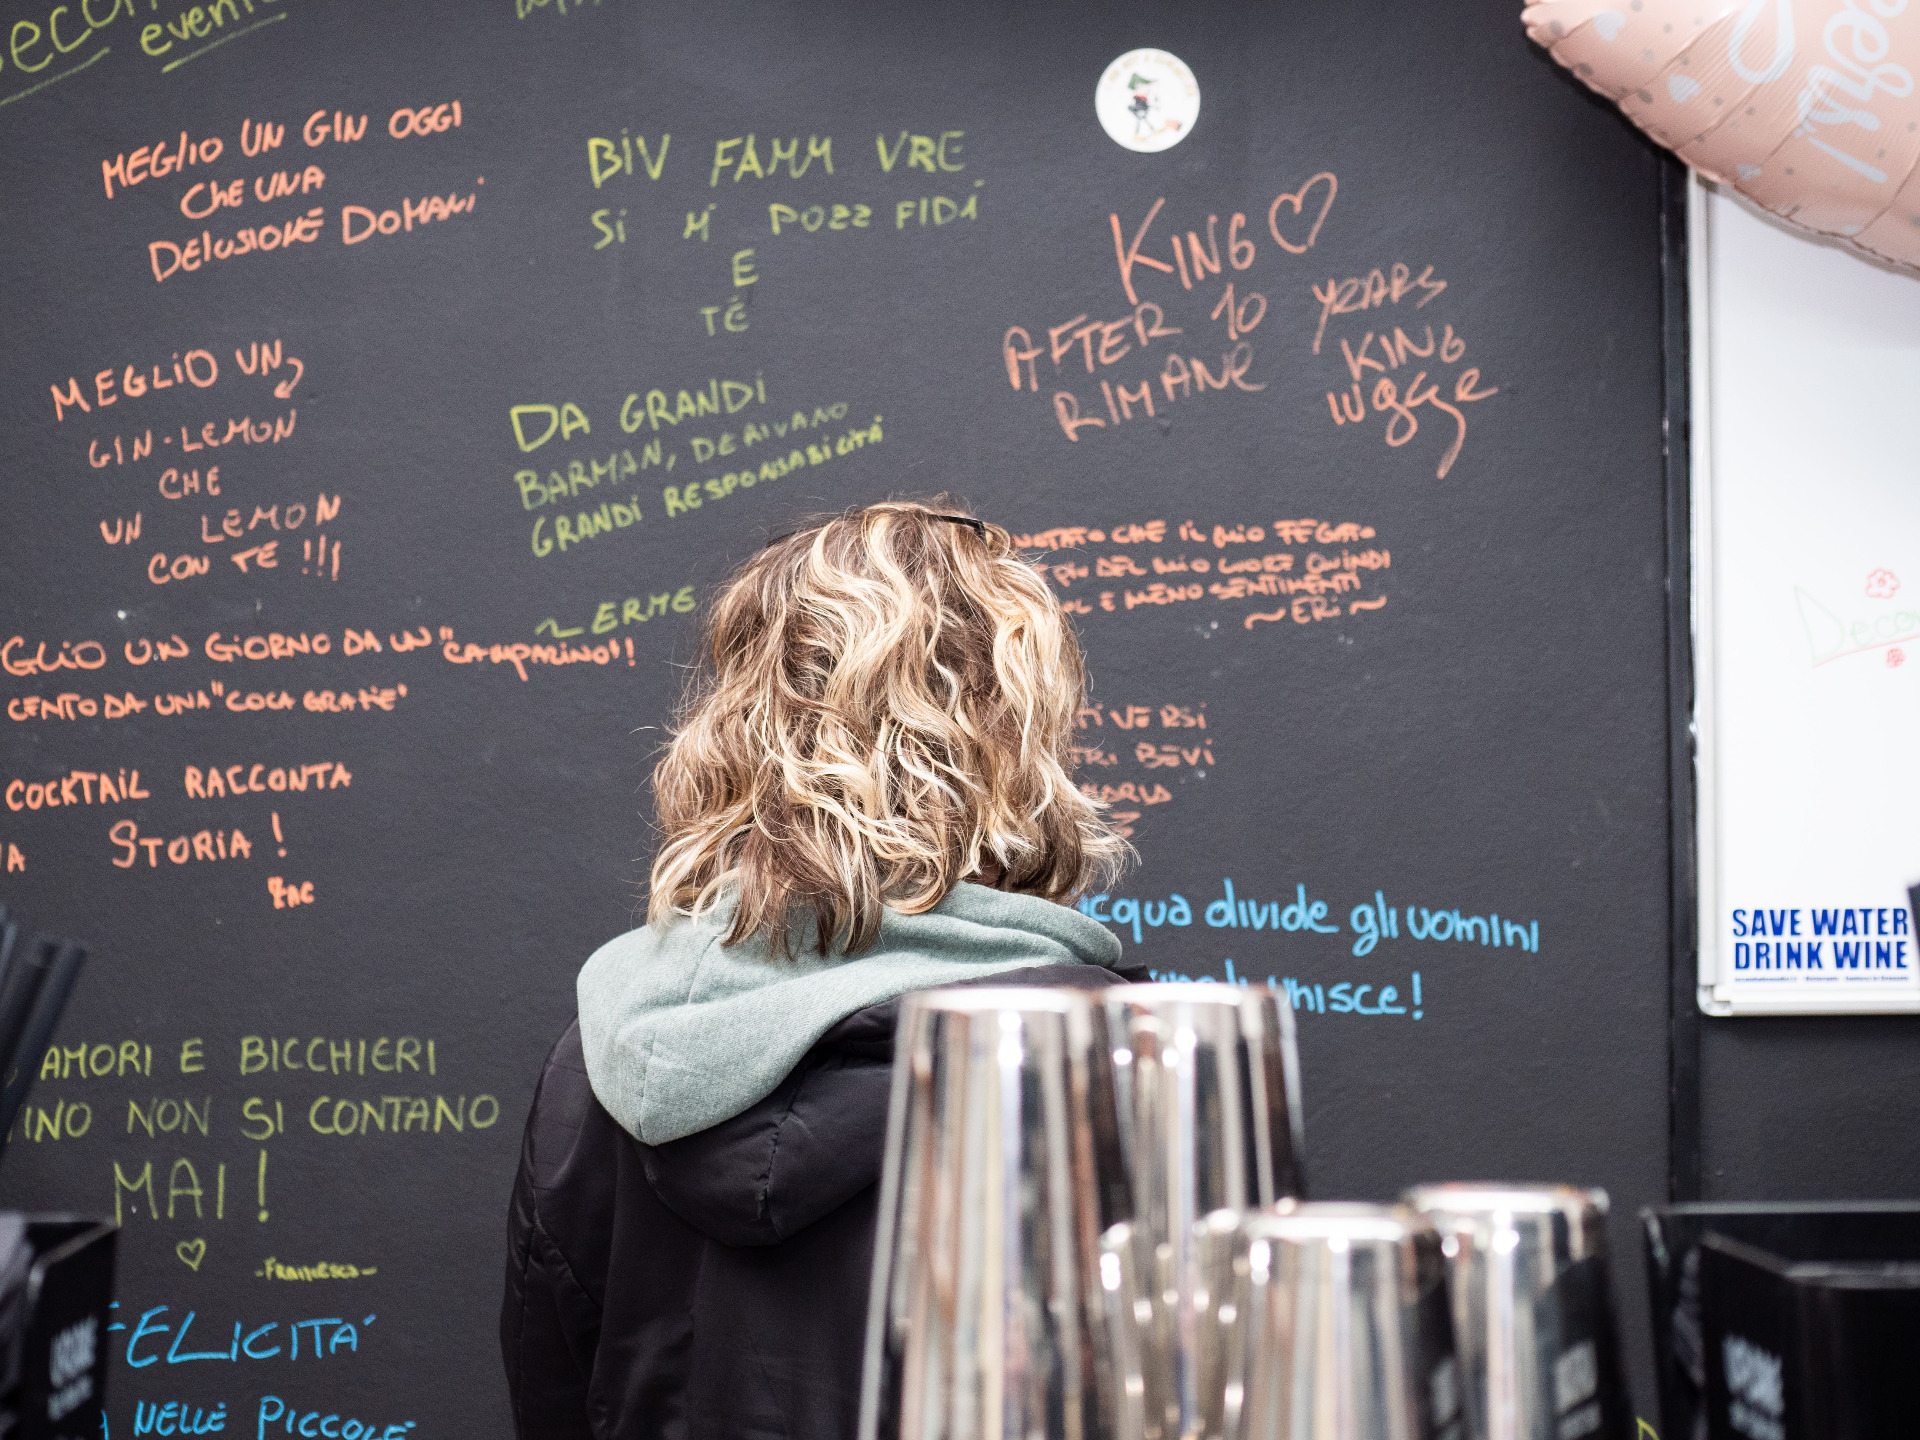 event
MEGLIO UN GIN OGGI
CHE UNA
DELUSIONE DOMANI
BIV FAMM VRE
SI M POZZ FIDÁ
E
TÉ
KING
AFTER 10 YEARS
RIMANE KING
MEGLIO UN
GIN-LEMON
CHE
UN LEMON
CON TE !!!
DA GRANDI
BARMAN, DERIVANO
GRANDI RESPONSABILITÁ
~ ERME
NOTATO CHE IL MIO FEGATO
DEL MIO CUORE QUINDI
E MENO SENTIMENTI
~ ERI ~
GLIO UN GIORNO DA UN "CAMPARINO"!
CENTO DA UNA "COCA GRAZIE"
COCKTAIL RACCONTA
STORIA !
ZAC
VERSI
BEVI
acqua divide gli uomini
unisce!
SAVE WATER
DRINK WINE
AMORI E BICCHIERI
INO NON SI CONTANO
MAI !
-FRANCESCA-
FELICITA'
NELLE PICCOLE